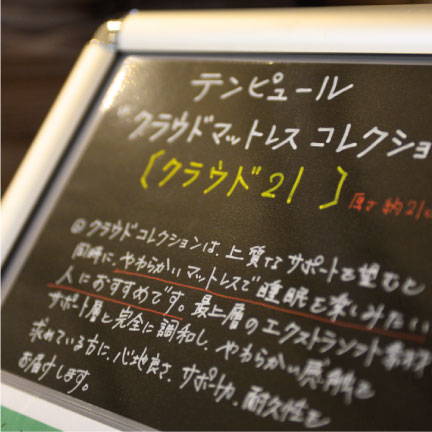 テンピュール
"クラウドマットレス コレクショ
〔クラウド21〕
厚さ 約21c
◎クラウドコレクションは、上質なサポートを望むと
同時に、やわらかいマットレスで睡眠を楽しみたい
人におすすめです。最上層のエクストラソフト素材
サポート層と完全に調和し、やわらかい感触を
求めている方に、心地良さ、サポート力、耐久性を
お届けします。